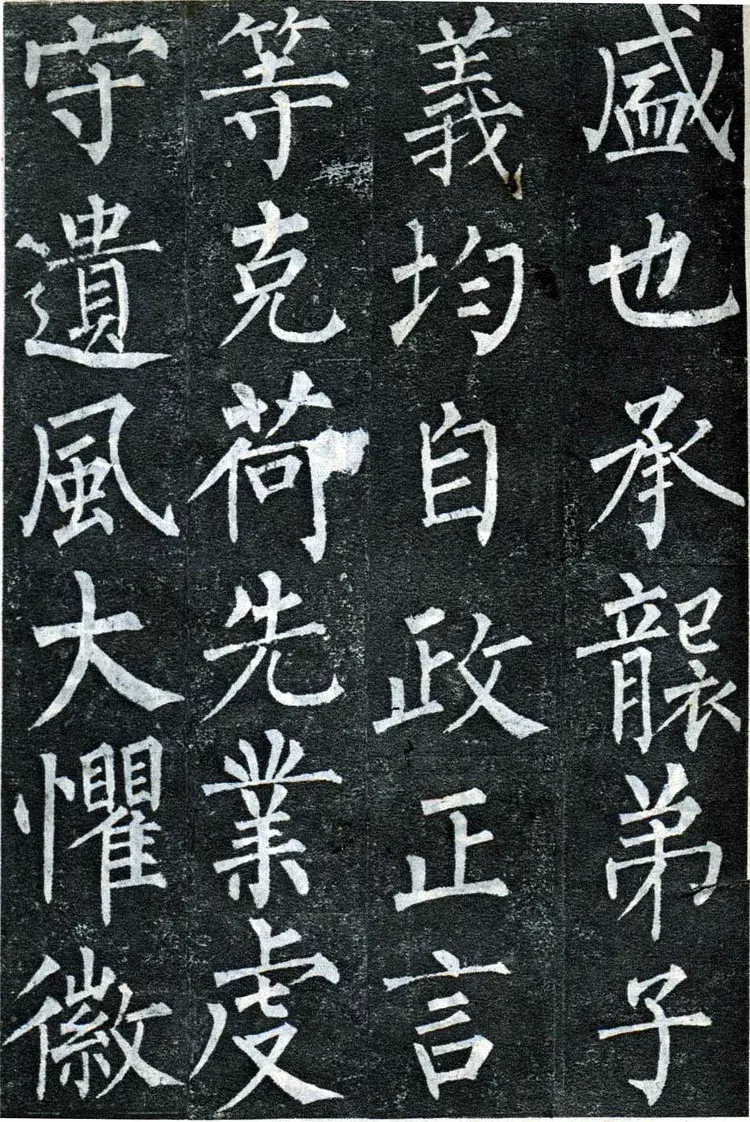 盛也承襲弟子
義均自政正言
等克荷先業虔
守遺風大懼徽